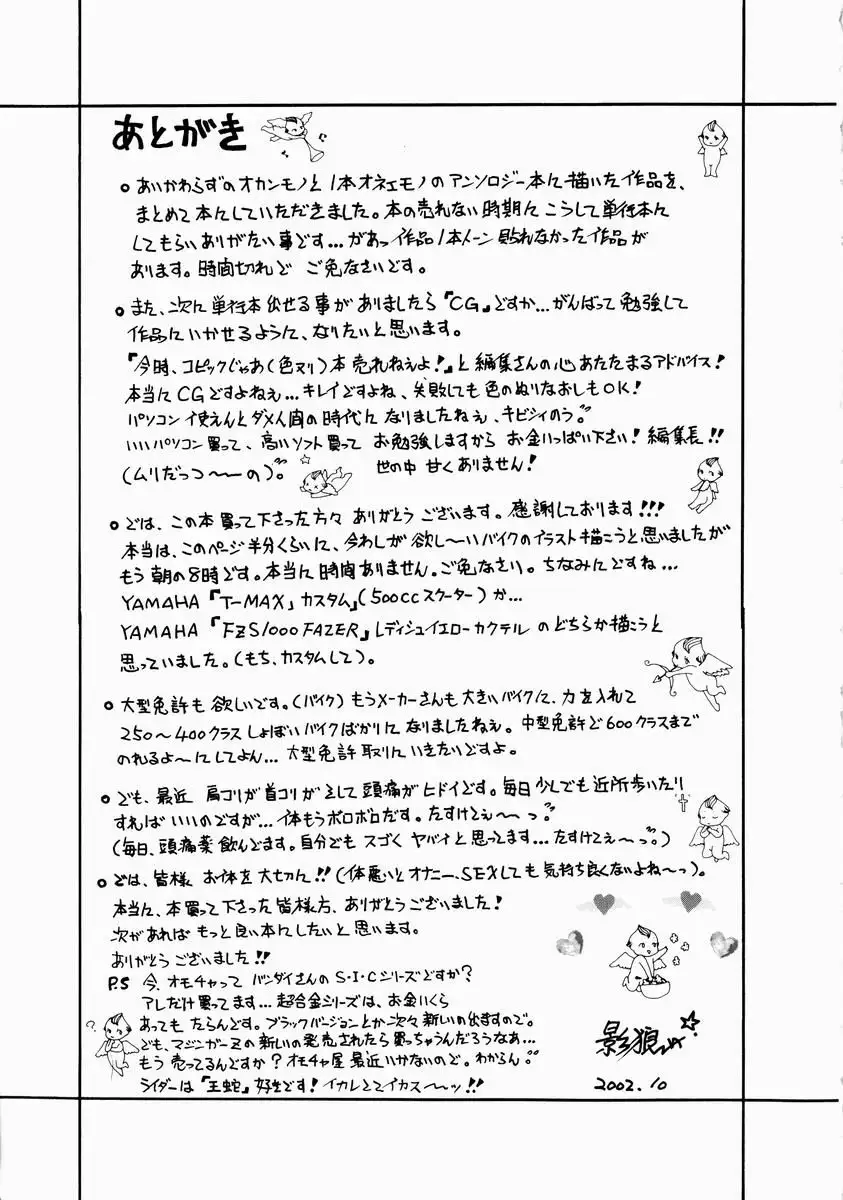 あとがき
○あいかわらずのオカンモノと1本オネェモノのアンソロジー本に描いた作品を、
まとめて本にしていただきました。本の売れない時期にこうして単行本に
してもらいありがたい事です…があっ作品1本トーン貼れなかった作品が
あります。時間切れで ご免なさいです。
○また、次に単行本出せる事がありましたら『CG』ですか…がんばって勉強して
作品にいかせるように、なりたいと思います。
『今時、コピックじゃあ(色ヌリ)本売れねぇよ!』と編集さんの心あたたまるアドバイス!
本当にCGですよねぇ…キレイですよね、失敗しても色のぬりなおしもOK!
パソコン使えんとダメ人間の時代になりましたねぇ、キビシィのう。
いいパソコン買って、高いソフト買って お勉強しますから お金いっぱい下さい!編集長!!
(ムリだっつ〜〜の)。 世の中 甘くありません!
○では、この本買って下さった方々 ありがとう ございます。感謝しております!!!
本当は、このページ半分くらいに、今わしが欲し〜いバイクのイラスト描こうと思いましたが
もう朝の8時です。本当に時間ありません。ご免なさい。ちなみにですね…
YAMAHA『T-MAX』カスタム』(500ccスクーター)か…
YAMAHA『FZS1000FAZER』レディシュイエローカクテル のどちらか描こうと
思っていました。(もち、カスタムして)。
○大型免許も欲しいです。(バイク)もうメーカーさんも大きいバイクに、力を入れて
250〜400クラスしょぼいバイクばかりになりましたねぇ。中型免許で600クラスまで
のれるよ〜にしてよん…大型免許取りにいきたいですよ。
○でも、最近 肩コリが首コリがそして頭痛がヒドイです。毎日少しでも近所歩いたり
すればいいのですが…体もうボロボロだす。たすけてぇ〜〜っ。
(毎日、頭痛薬飲んでます。自分でもスゴくヤバイと思ってます…たすけてぇ〜っ。)
○では、皆様 お体を大切に!!(体悪いとオナニー、SEXしても気持ち良くないよね〜っ)。
本当に、本買って下さった皆様方、ありがとうございました!
次があれば もっと良い本にしたいと思います。
ありがとうございました!!
P.S 今、オモチャって バンダイさんのS・I・Cシリーズですか?
アレだけ買ってます…超合金シリーズは、お金いくら
あってもたらんです。ブラックバージョンとか次々新しいの出ますので。
でも、マジンガーZの新しいの発売されたら買っちゃうんだろうなあ…
もう売ってるんですか?オモチャ屋最近いかないので。わからん。
ライダーは『王蛇』好きです!イカレててイカス〜〜ッ!!
影狼
2002.10